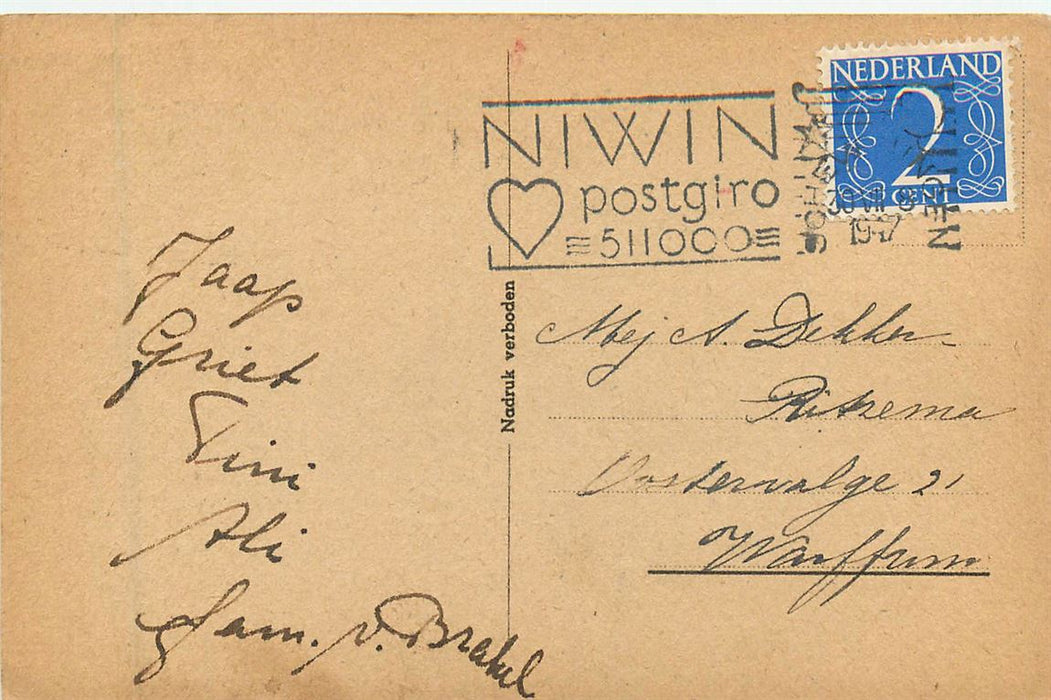 NEDERLAND
2
CENT
NIWIN
postgiro
511000
1947
Nadruk verboden
Jaap
Griet
Tini
Ali
Fam. v. Brakel
Mej A. Dekker-
Ritzema
Oostervalge 21
Warffum